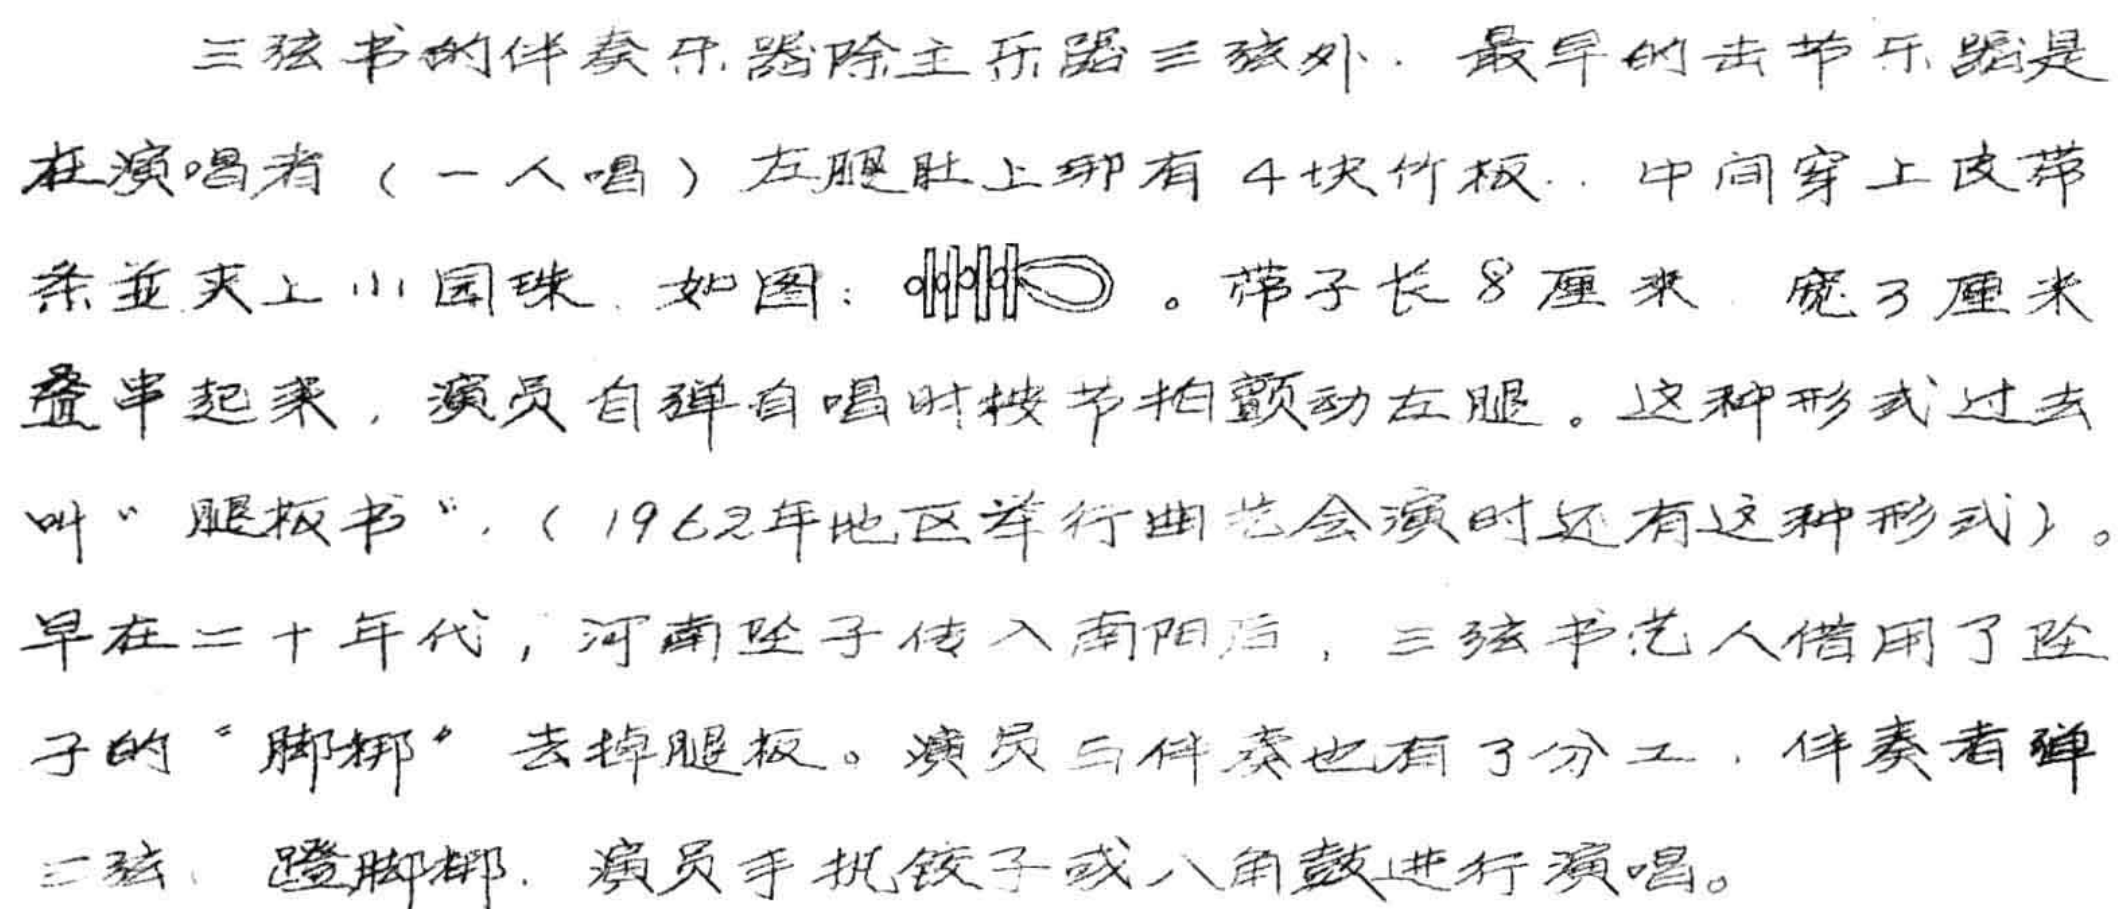 三弦书的伴奏乐器除主乐器三弦外．最早的击节乐器是
在演唱者（一人唱）左腿肚上绑有4块竹板．．中间穿上皮带
条並夹上小园珠．如图：。带子长8厘米．宽3厘米
叠串起来，演员自弹自唱时按节拍颤动左腿。这种形式过去
叫“腿板书”，（1962年地区举行曲艺会演时还有这种形式）。
早在二十年代，河南坠子传入南阳后，三弦书艺人借用了坠
子的“脚梆”去掉腿板。演员与伴奏也有了分工．伴奏者弹
三弦．蹬脚梆．演员手执铰子或八角鼓进行演唱。